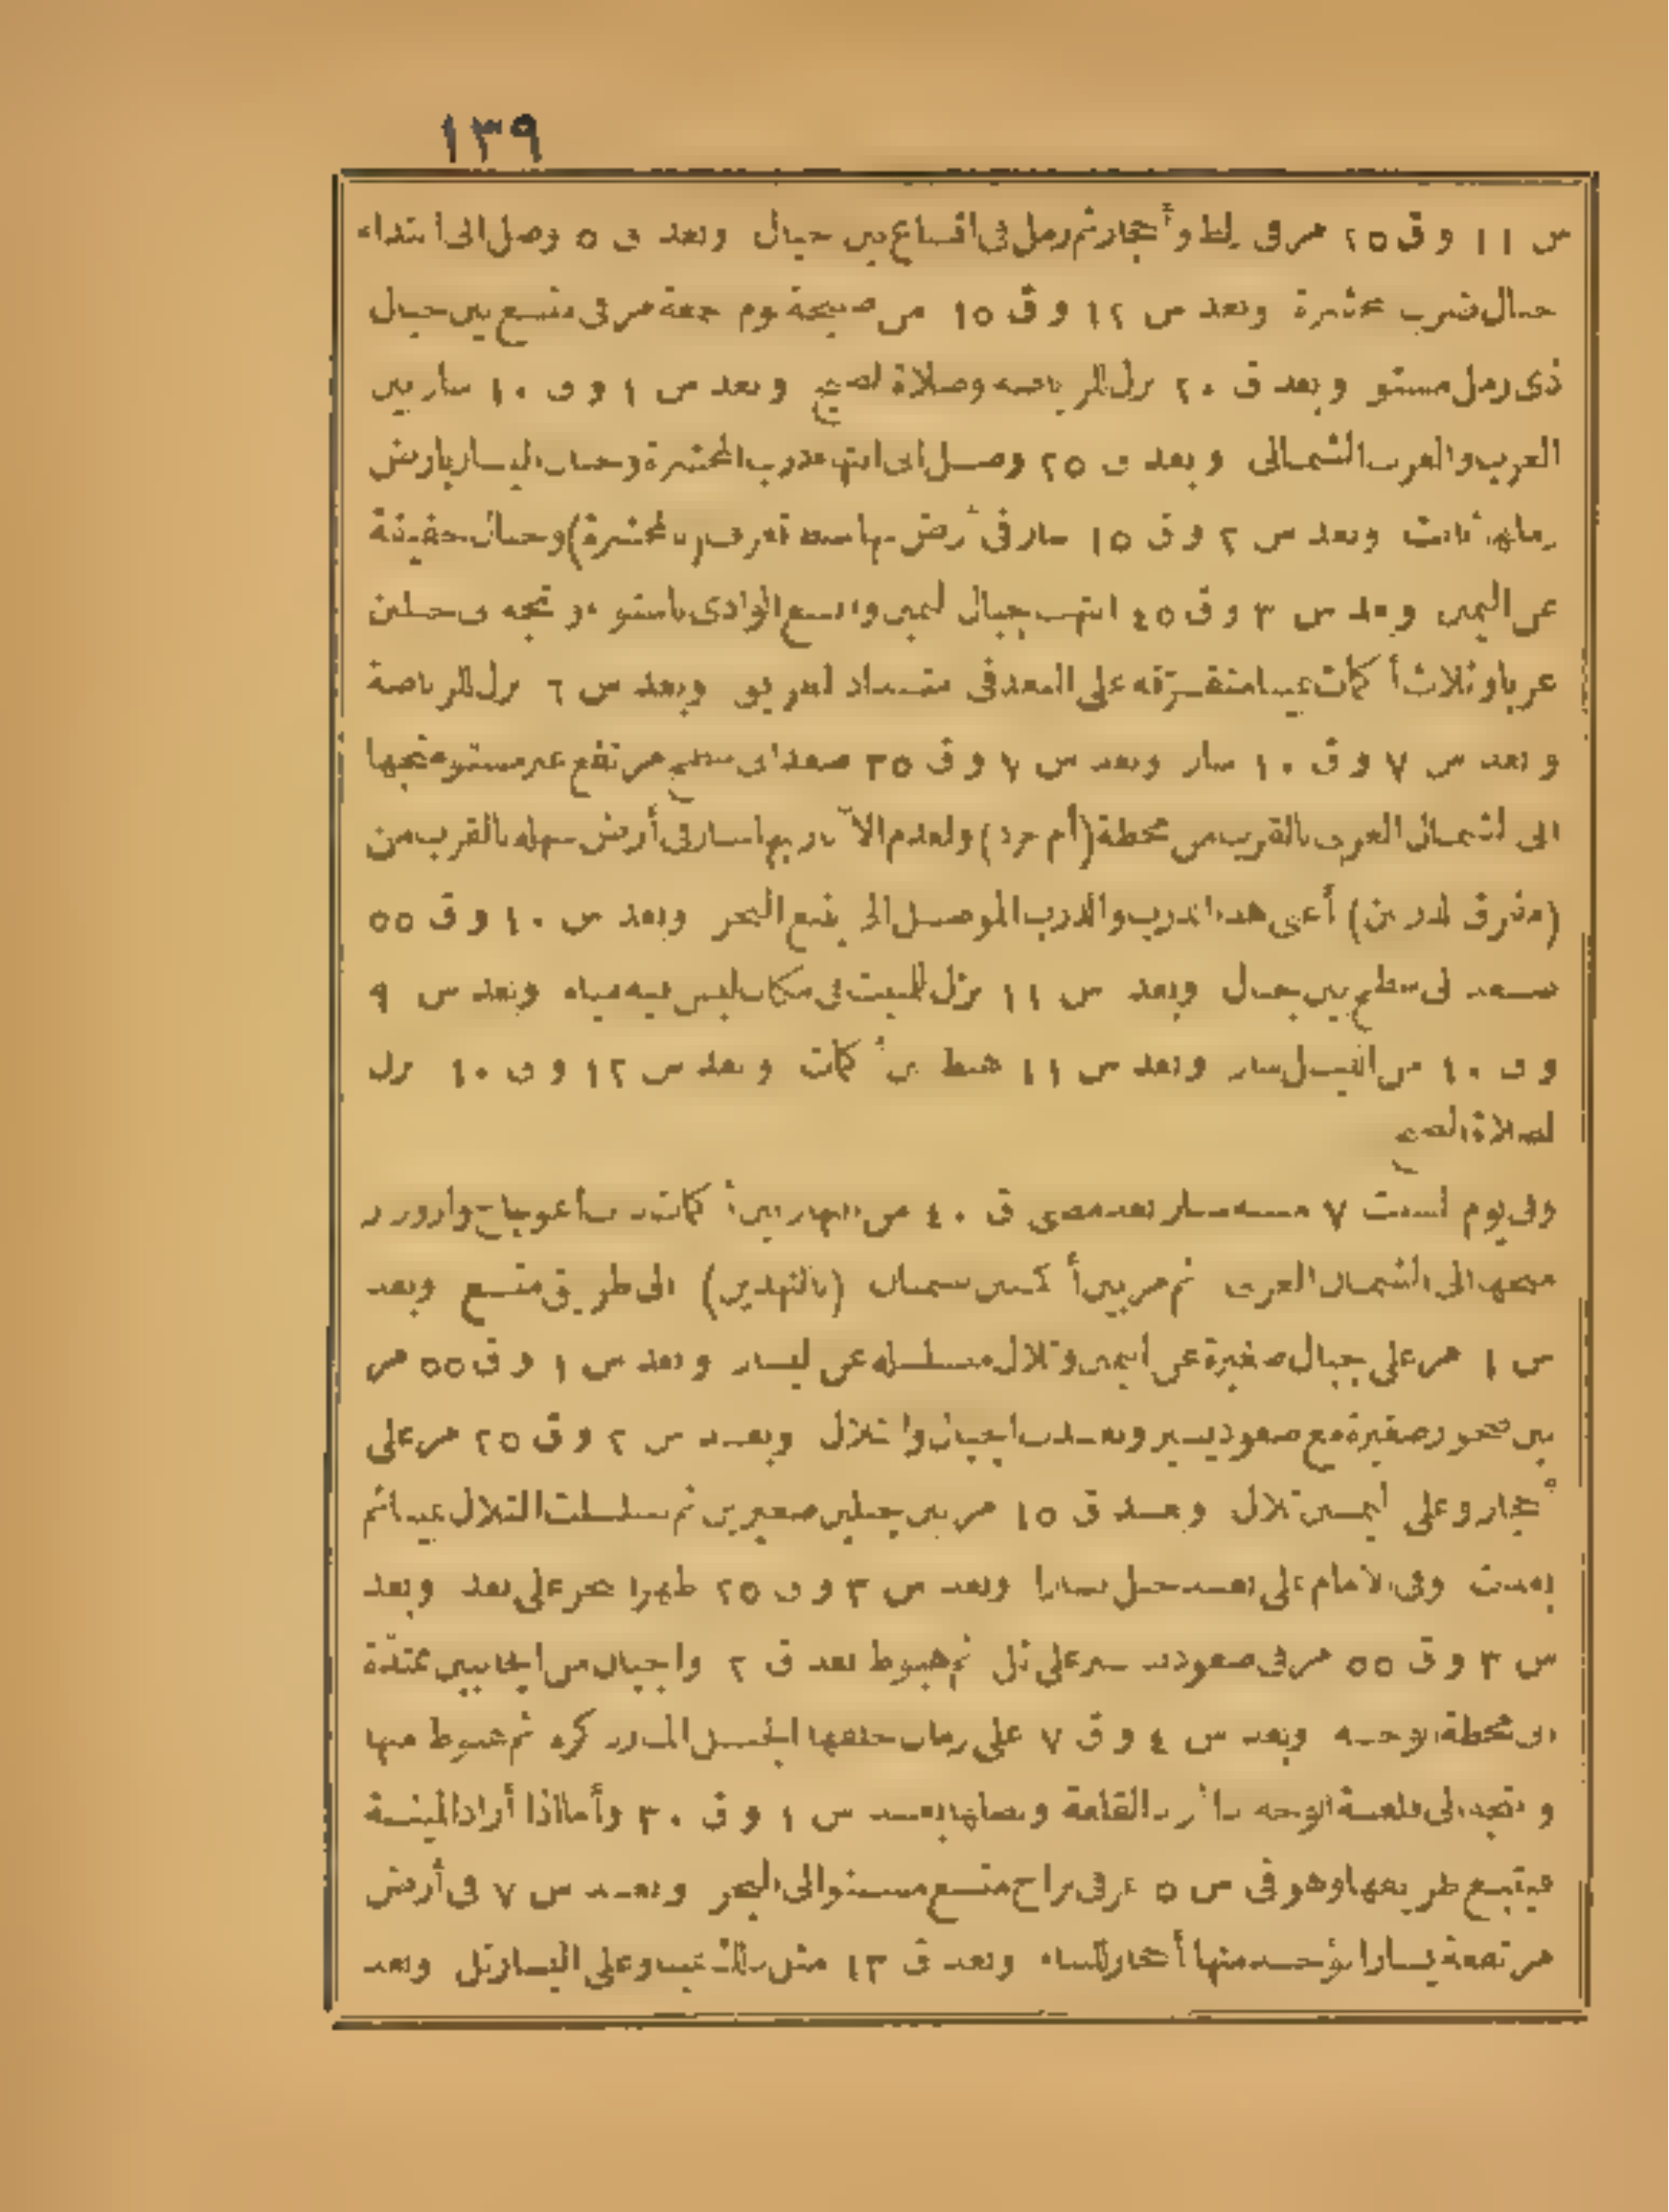 ١٣٩
س ١١ و ق ٢٥ مر فى زلط وأحجار ثم رمل فى اتساع بين جبال وبعد ق ٥ وصل الى ابتداء
جبال ضرب محشرة وبعد س ١٢ و ق ١٥ من صبيحة يوم جمعة مر فى متسع بين جبال
ذى رمل مستو وبعد ق ٢٠ نزل للرياضة وصلاة الصبح وبعد س ١ و ق ١٠ سار بين
الغرب والغرب الشمالى وبعد ق ٢٥ وصل الى انتهاء درب المحشرة وجبال اليسار بارض
رملها نابت وبعد س ٢ و ق ١٥ سار فى أرض بها سنط تعرف (بالمحشرة) وجبال خفيفة
عن اليمين وبعد س ٣ و ق ٤٥ انتهت جبال اليمين واتسع الوادى باستواء وتجه الى جبلين
غربا وثلاث أكمات عينا متفرّقة على البعد فى امتداد الطريق وبعد س ٦ نزل للرياضة
وبعد س ٧ و ق ١٠ سار وبعد س ٧ و ق ٣٥ صعد الى سطح مرتفع غير مستو متجها
الى الشمال الغربى بالقرب من محطة (أم حرد) ولعدم الآبار بها سار فى أرض سهله بالقرب من
(مفرق الدربين) أعنى هذا الدرب والدرب الموصل الى ينبع البحر وبعد س ١٠ و ق ٥٥
صعد فى سطح بين جبال وبعد س ١١ نزل للمبيت فى مكان ليس فيه مياه وبعد س ٩
و ق ١٠ من الليل سار وبعد س ١١ هبط بين أكمات وبعد س ١٢ و ق ١٠ نزل
لصلاة الصبح
وفى يوم السبت ٧ منه سار بعد مضى ق ٤٠ من النهار بين أكمات ذات أعوجاج وازورار
متجها الى الشمال الغربى ثم مر بين أكمتين تسميان (بالنهدين) الى طريق متسع وبعد
س ١ مر على جبال صغيرة عن اليمين وتلال متسلسلة عن اليسار وبعد س ١ و ق ٥٥ مر
بين صخور صغيرة مع صعود يسير وبعدت الجبال والتلال وبعد س ٢ و ق ٢٥ مر على
أحجار وعلى اليمين تلال وبعد ق ١٥ مر بين جبلين صغيرين ثم تسلسلت التلال عينا ثم
بعدت وفى الامام على بعد جبل يسارا وبعد س ٣ و ق ٢٥ ظهرا بحر على بعد وبعد
س ٣ و ق ٥٥ مر فى صعود يسير على تل ثم هبوط بعد ق ٢ والجبال من الجانبين ممتدّة
الى محطة الوجه وبعد س ٤ و ق ٧ على رمال خلفها الجبل المار ذكره ثم هبوط منها
وتجه الى قلعة الوجه القلعة وبصلها بعد س ١ و ق ٣٠ وأما اذا أراد المينة
فيتبع طريقها وهو فى س ٥ يمر فى براح متسع مستو الى البحر وبعد س ٧ فى أرض
مرتفعة يسارا يؤخذ منها أحجار للبناء وبعد ق ١٣ وعلى اليسار تل وبعد